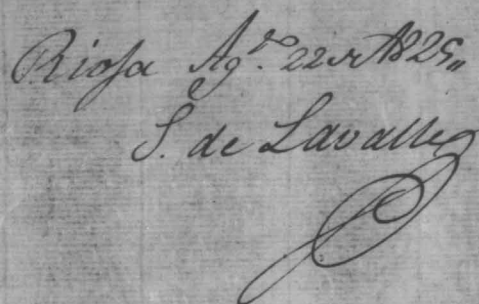 Rioja Ag.to 22 de 1825,,
S. de Lavalle